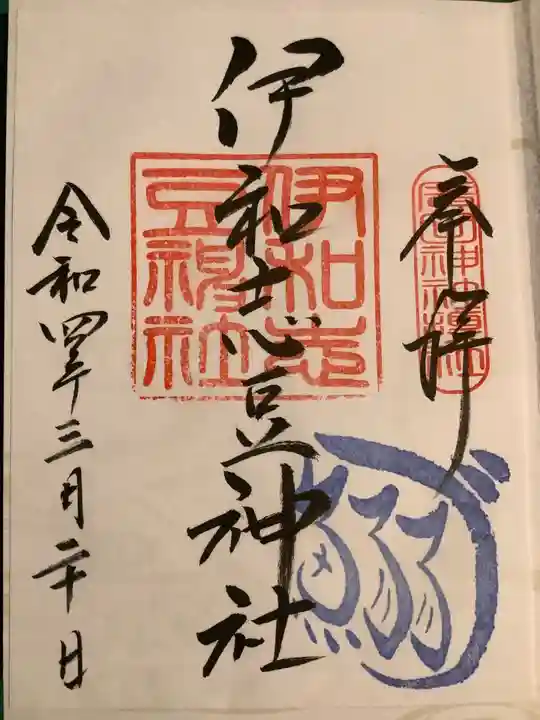 奉拝
伊和志豆神社
伊和志
豆神社
令和四年三月二十日